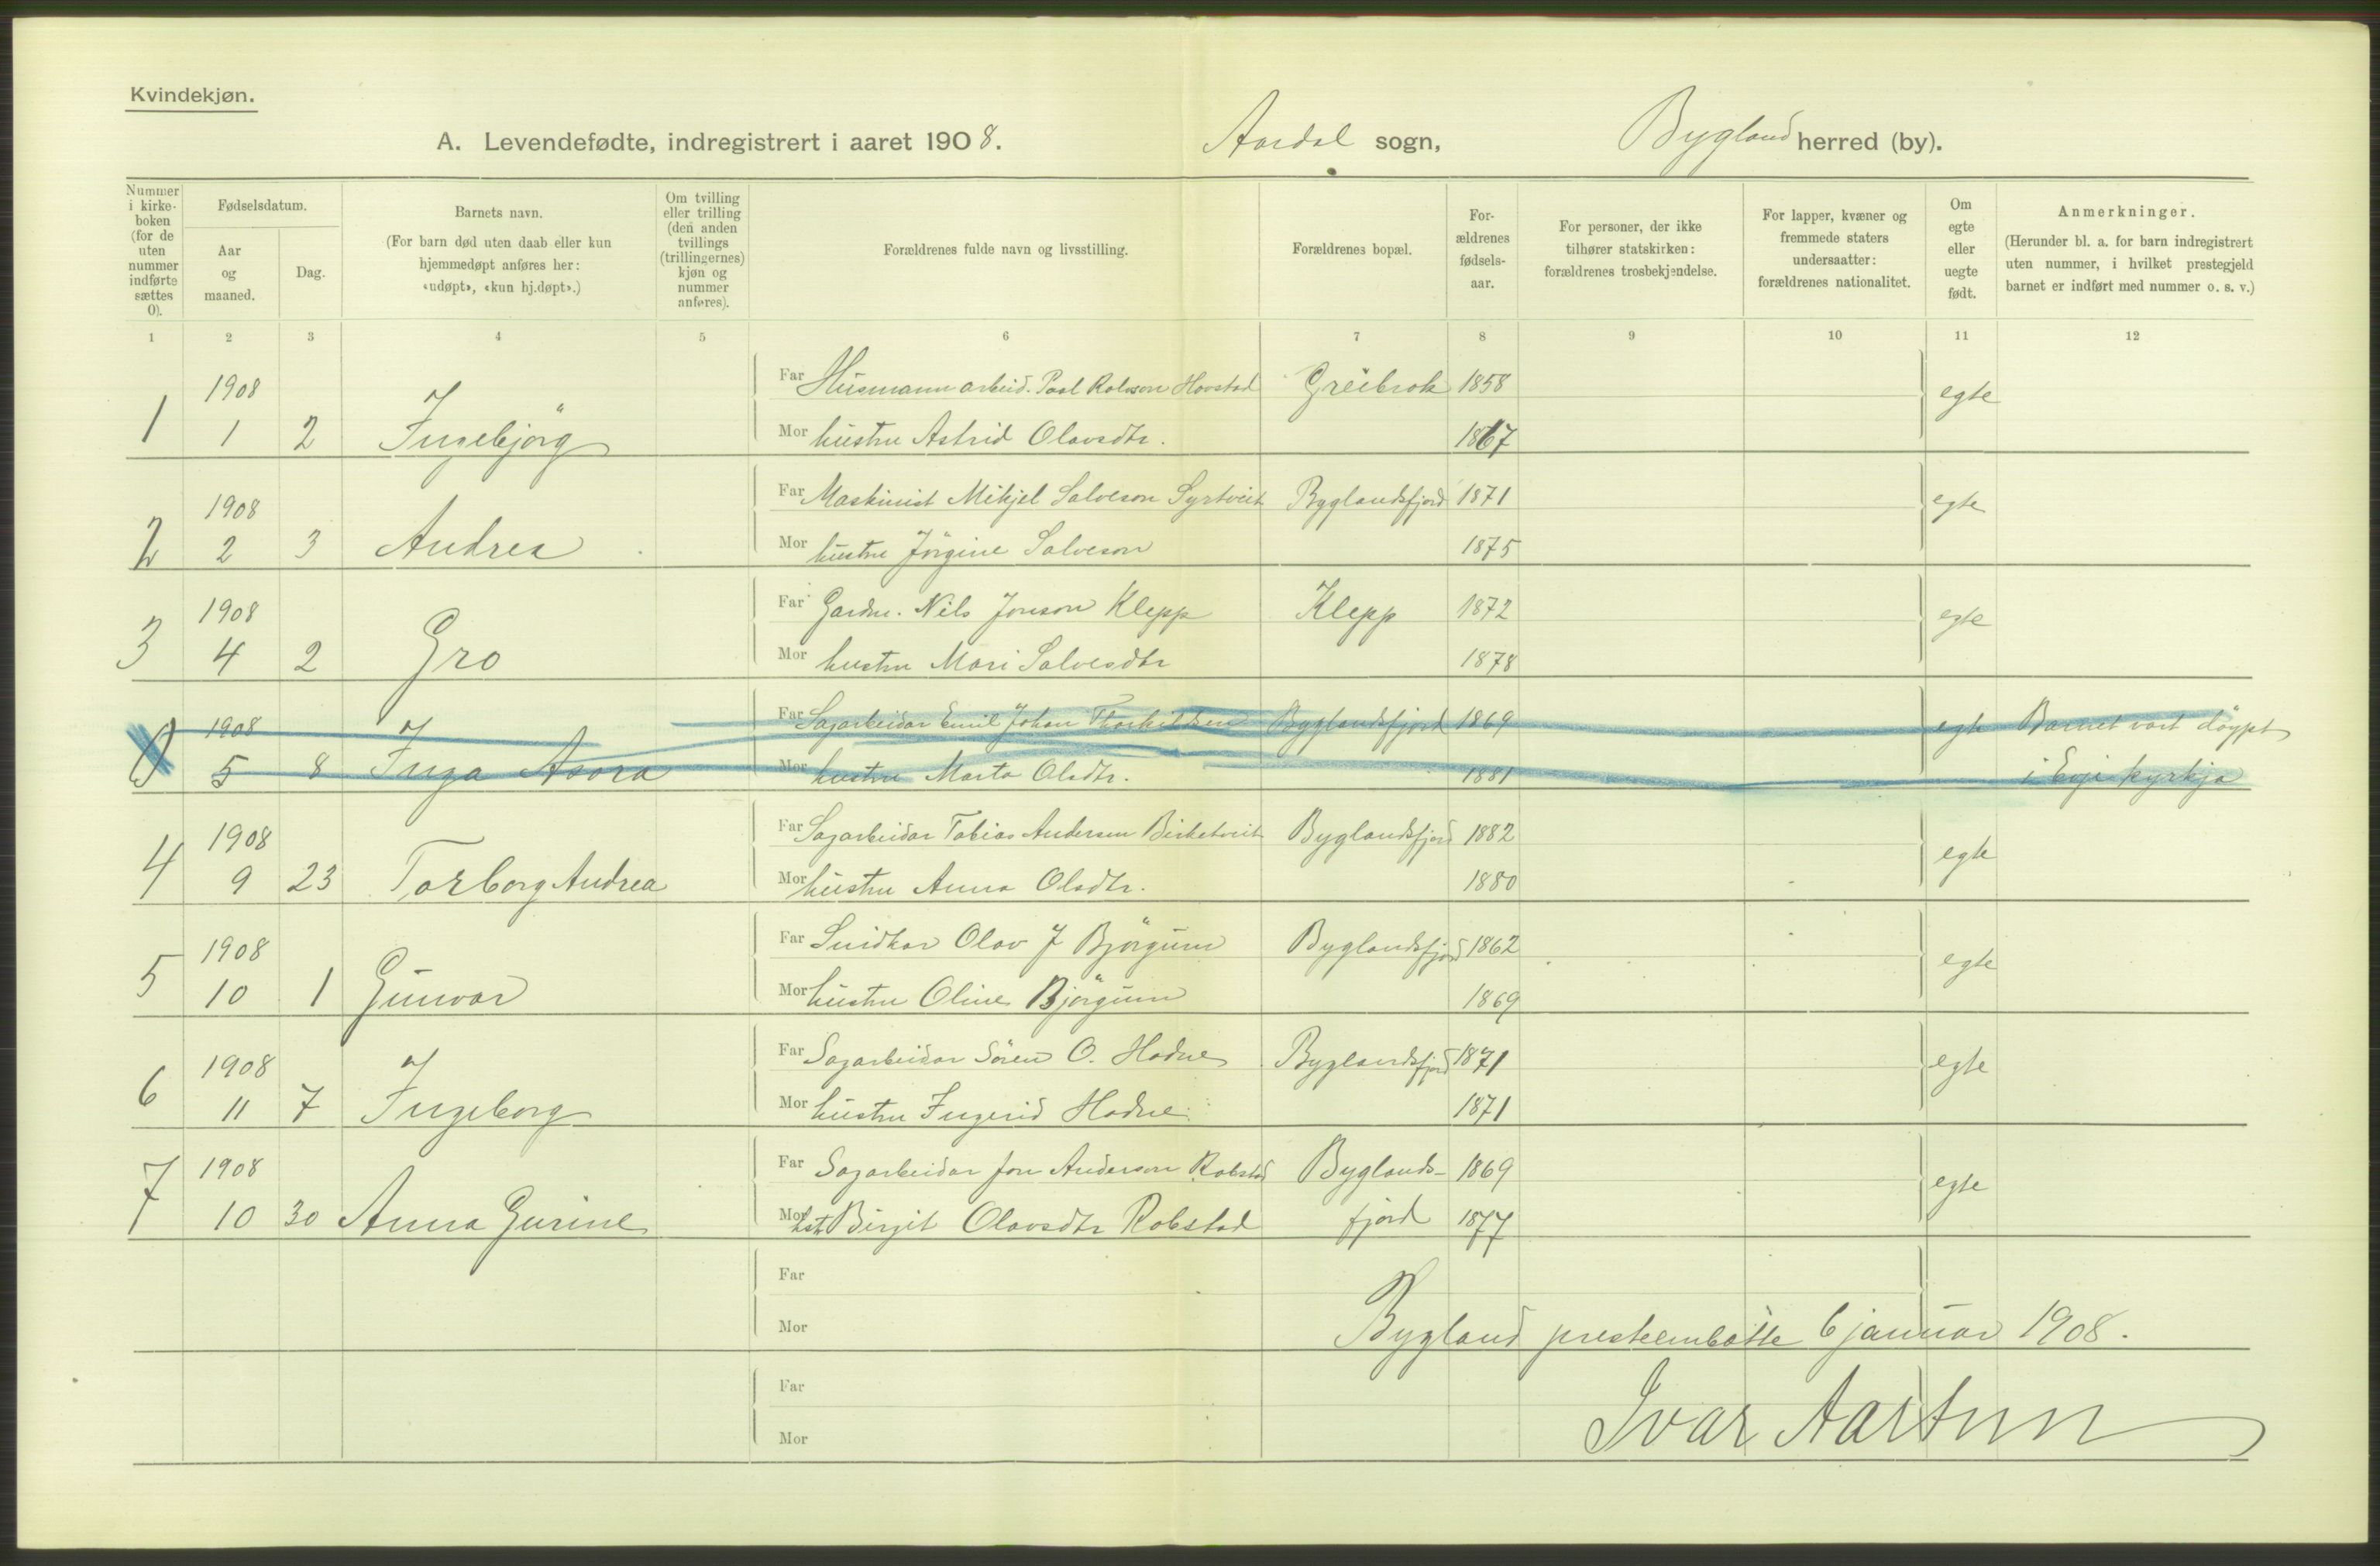 Kvindekjøn.
A. Levendefødte, indregistrert i aaret 1908. Aardal sogn, Bygland herred (by).
Nummer i kirke-boken (for de uten nummer indførte sættes 0).
Fødselsdatum.
Aar og maaned.
Dag.
Barnets navn.
(For barn død uten daab eller kun hjemmedøpt anføres her: «udøpt», «kun hj.døpt».)
Om tvilling eller trilling (den anden tvillings (trillingernes) kjøn og nummer anføres).
Forældrenes fulde navn og livsstilling.
Forældrenes bopæl.
For-ældrenes fødsels-aar.
For personer, der ikke tilhører statskirken: forældrenes trosbekjendelse.
For lapper, kvæner og fremmede staters undersaatter: forældrenes nationalitet.
Om egte eller uegte født.
Anmerkninger.
(Herunder bl. a. for barn indregistrert uten nummer, i hvilket prestegjeld barnet er indført med nummer o. s. v.)
1 2 3 4 5 6 7 8 9 10 11 12
1908 Far Husmann arbeid. Paal Hovstad Greibrok 1858 egte
1 1 2 Ingebjörg Mor hustru Astrid Olavsdtr. 1867
1908 Far Maskinist Mikjel Salveson Syrtveit Byglandsfjord 1871 egte
2 2 3 Andrea Mor hustru Jörgine Salveson 1875
1908 Far Gardm. Nils Jonson Klepp Klepp 1872 egte
3 4 2 Gro Mor hustru Mari Salvesdtr 1878
1908 Far Sagarbeidar Emil Johan Thorkildsen Byglandsfjord 1869 egte Barnet vart döypt
0 5 8 Inga Asora Mor hustru Marta Olsdtr. 1881 i Evje kyrkja
1908 Far Sagarbeidar Tobias Andersen Birketveit Byglandsfjord 1882 egte
4 9 23 Torborg Andrea Mor hustru Anna Olsdtr. 1880
1908 Far Snidkar Olav J Björgum Byglandsfjord 1862 egte
5 10 1 Gunvor Mor hustru Oline Björgum 1869
1908 Far Sagarbeidar Sören O. Hodne Byglandsfjord 1871 egte
6 11 7 Ingeborg Mor hustru Ingerid Hodne 1871
1908 Far Sagarbeidar Jon Anderson Robstad Byglands- 1869 egte
7 10 30 Anna Gurine Mor hst. Birgit Olavsdtr Robstad fjord 1877
Far
Mor Bygland presteembætte 6 januar 1908.
Far
Mor Ivar Aartun